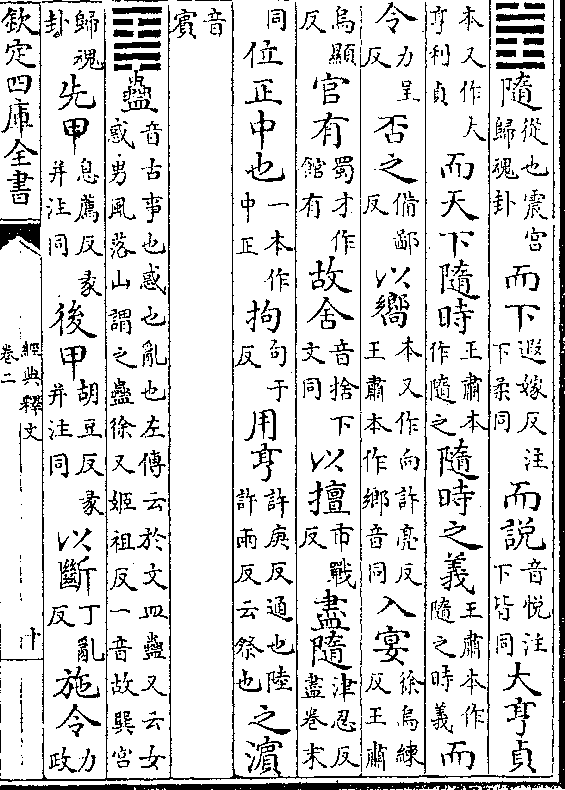 ䷐隨從也震宮歸魂卦而下遐嫁反注下柔同而說音悅注下皆同大亨貞
本又作大亨利貞而天下隨時王肅本作隨之隨時之義王肅本作隨之時義而
令力呈反否之備鄙反以嚮本又作向許亮反王肅本作鄉音同入宴徐烏練反王肅
烏顯反官有蜀才作館有故舍音捨下文同以擅市戰反盡隨津忍反盡卷末
同位正中也一本作中正拘句于反用亨許庚反通也陸許兩反云祭也之濵
音賓
䷑蠱音古事也惑也亂也左傳云於文皿蠱又云女惑男風落山謂之蠱徐又姬祖反一音故巽宮
歸魂卦先甲息薦反彖并注同後甲胡豆反彖并注同以斷丁亂反施令力政
欽定四庫全書
經典釋文
卷二
十